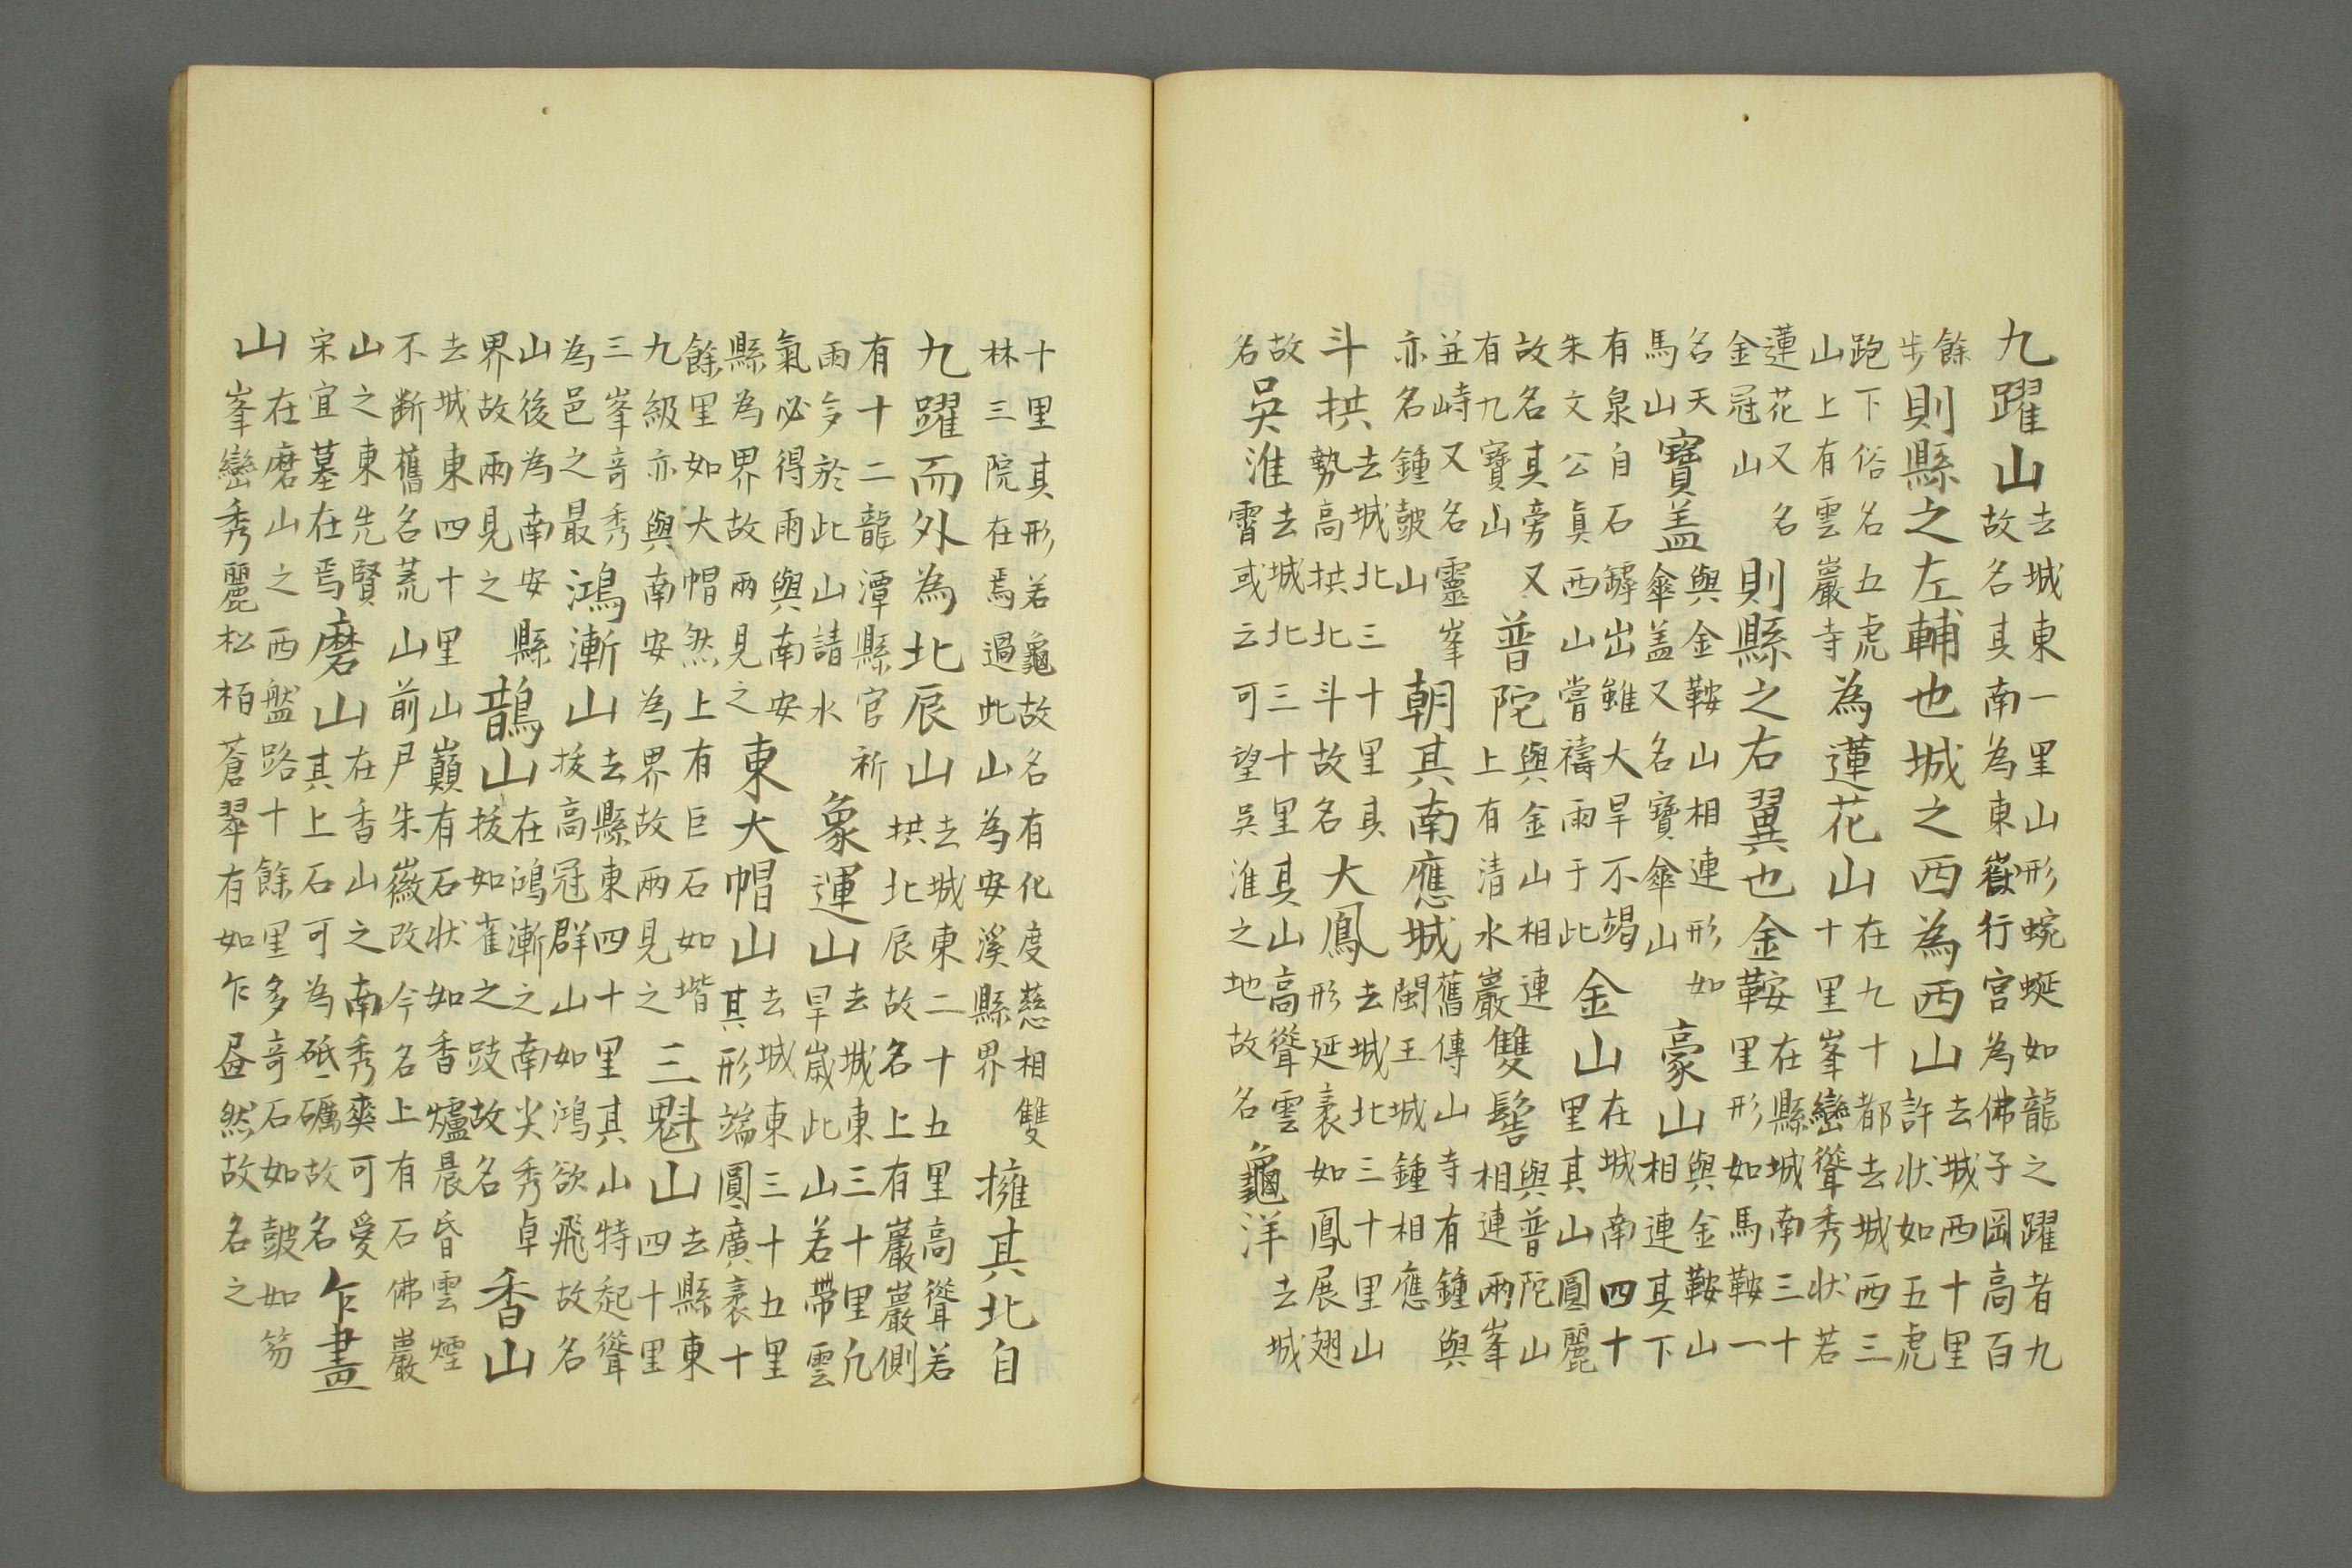 九躍山去城東一里山形蜿蜒如龍之躍者九故名其南為東嶽行宮為佛子岡高百
餘步則縣之左輔也城之西為西山去城西十里許狀如五虎
跑下俗名五虎山上有雲巖寺為蓮花山在九十都去城西三十里峯巒聳秀狀若
蓮花又名金冠山則縣之右翼也金鞍在縣城南三十里形如馬鞍一
名天馬山寶盖與金鞍山相連形如傘盖又名寶傘山豪山與金鞍山相連其下
有泉自石罅出雖大旱不竭朱文公眞西山嘗禱雨于此金山在城南四十里其山圓麗
故名其旁又有九寶山普陀與金山相連上有清水巖雙髻與普陀山相連兩峯
並峙又名靈峯亦名鍾皷山朝其南應城舊傳山寺有鍾與閩王城鍾相應
斗拱去城北三十里其勢高拱北斗故名大鳳去城北三十里山形延袤如鳳展翅
故名吳淮去城北三十里其山高聳雲霄或云可望吳淮之地故名龜洋去城
十里其形若龜故名有化度慈相雙林三院在焉過此山為安溪縣界擁其北自
九躍而外為北辰山去城東二十五里高聳若拱北辰故名上有巖巖側
有十二龍潭縣官祈雨多於此山請水象運山去城東三十里凢旱歲此山若帶雲
氣必得雨與南安縣為界故兩見之東大帽山去城東三十五里其形端圓廣袤十
餘里如大帽然上有巨石如堦九級亦與南安為界故兩見之三魁山去縣東四十里
三峯奇秀為邑之最鴻漸山去縣東四十里其山特起聳拔高冠群山如鴻欲飛故名
山後為南安縣界故兩見之鵲山在鴻漸之南尖秀卓拔如雀之跂故名香山
去城東四十里山巔有石狀如香爐晨昏雲煙不断舊名荒山前尸朱徽改今名上有石佛巖
山之東先賢宋宜墓在焉磨山在香山之南秀爽可愛其上石可為砥礪故名乍晝
山在磨山之西盤路十餘里多奇石如皷如笏峯巒秀麗松栢蒼翠有如乍昼然故名之